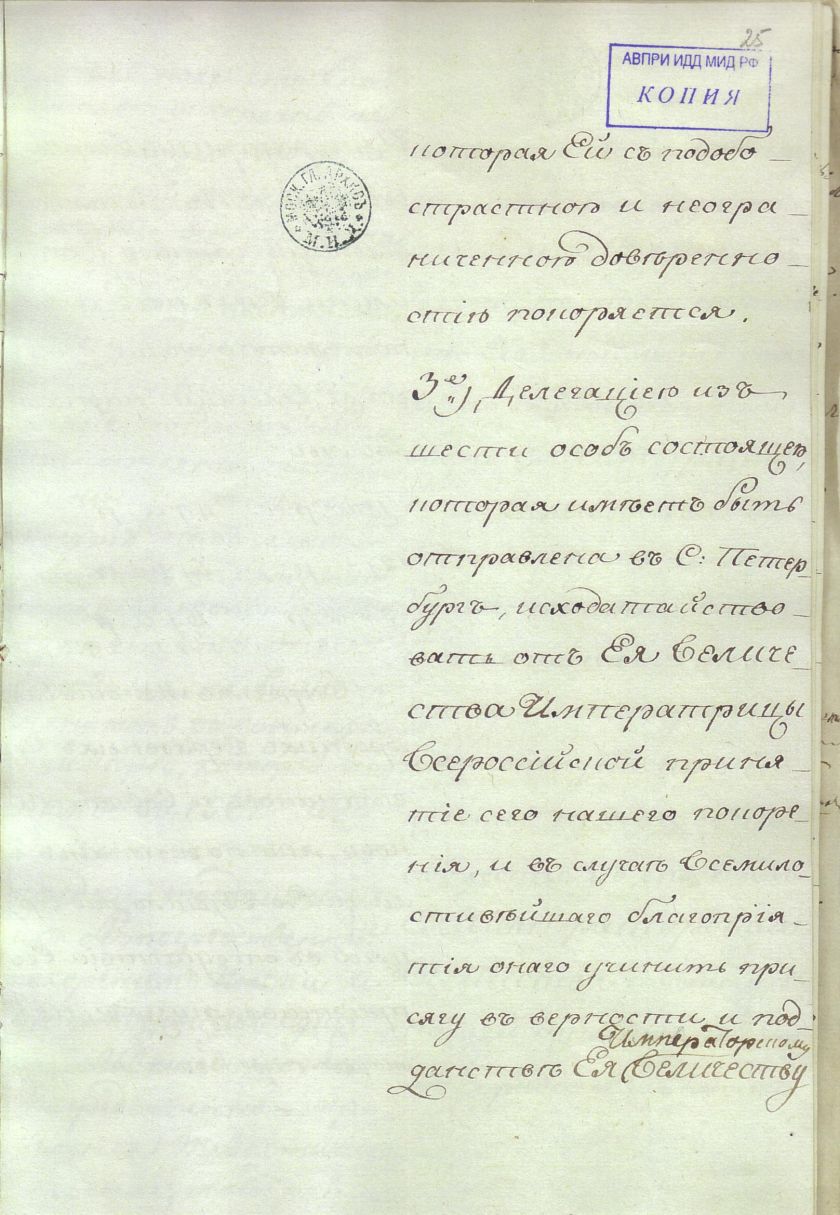 25
АВПРИ ИДД МИД РФ
КОПИЯ
МОСК. ГЛ. АРХИВЪ М.И.Д.
которая Ей съ подобо-
страстною и неогра-
ниченною довѣренно-
стію покоряется.
3е), Делегаціею изъ
шести особъ состоящею,
которая имѣетъ быть
отправлена въ С: Петер-
бургъ, исходатайство-
вать отъ Ея Величе-
ства Императрицы
Всероссійской приня-
тіе сего нашего покоре-
нія, и въ случаѣ Всемило-
стивѣйшаго благопрія-
тія онаго учинить при-
сягу въ верности и под-
Императорскому
данствѣ Ея Величеству